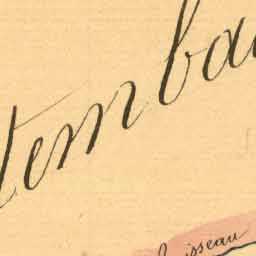 temba
Ruisseau